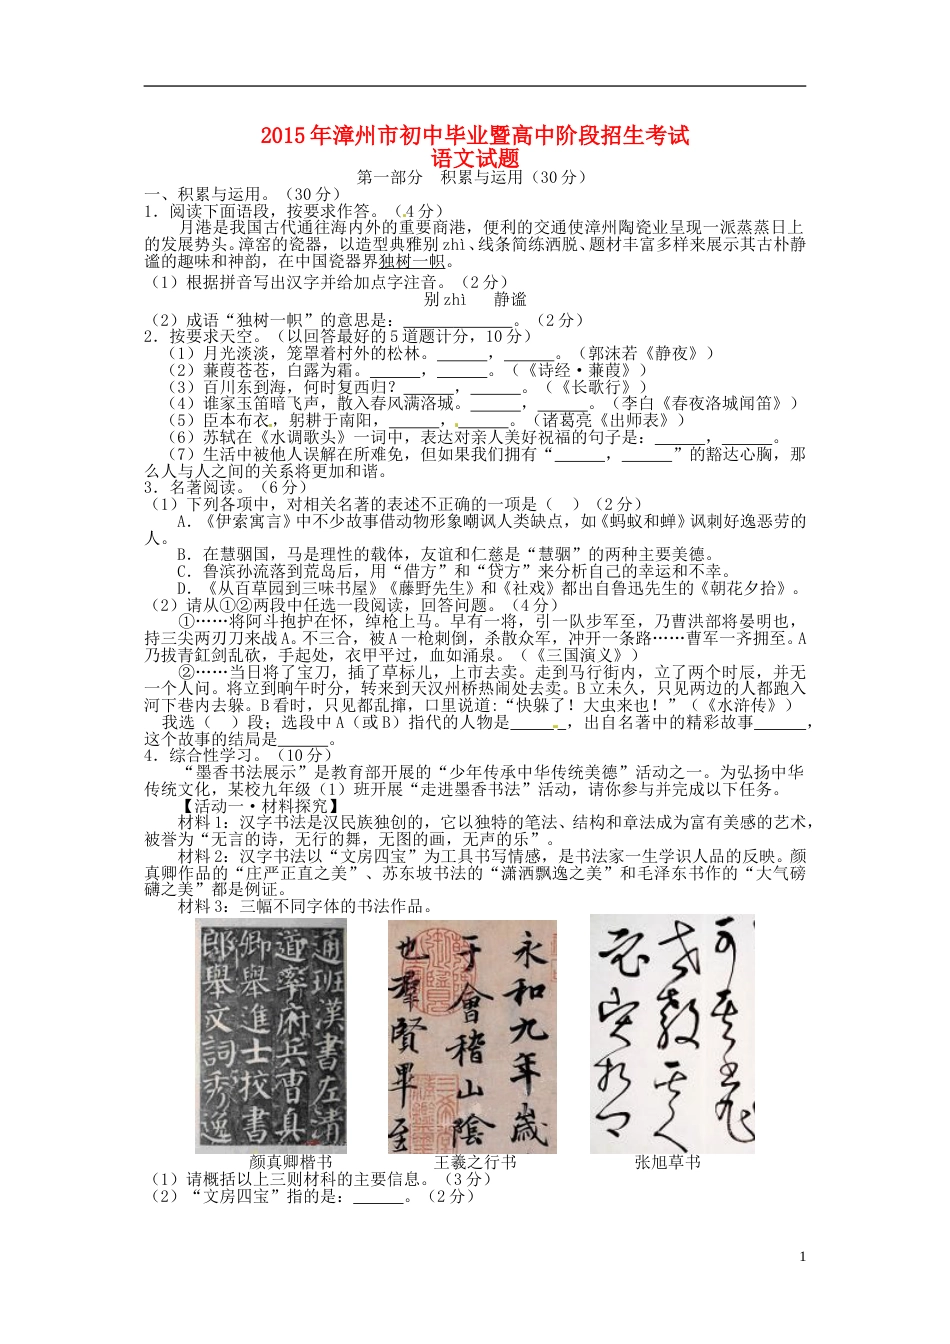 2015年漳州市初中毕业暨高中阶段招生考试
语文试题
第一部分　积累与运用（30分）
一、积累与运用。（30分）
1．阅读下面语段，按要求作答。（4分）
月港是我国古代通往海内外的重要商港，便利的交通使漳州陶瓷业呈现一派蒸蒸日上
的发展势头。漳窑的瓷器，以造型典雅别zhì、线条简练洒脱、题材丰富多样来展示其古朴静
谧的趣味和神韵，在中国瓷器界独树一帜。
（1）根据拼音写出汉字并给加点字注音。（2分）
别zhì　　静谧
（2）成语“独树一帜”的意思是：______________。（2分）
2．按要求天空。（以回答最好的5道题计分，10分）
（1）月光淡淡，笼罩着村外的松林。______，______。（郭沫若《静夜》）
（2）蒹葭苍苍，白露为霜。______，______。（《诗经·蒹葭》）
（3）百川东到海，何时复西归？______，______。（《长歌行》）
（4）谁家玉笛暗飞声，散入春风满洛城。______，______。（李白《春夜洛城闻笛》）
（5）臣本布衣，躬耕于南阳，______，______。（诸葛亮《出师表》）
（6）苏轼在《水调歌头》一词中，表达对亲人美好祝福的句子是：______，______。
（7）生活中被他人误解在所难免，但如果我们拥有“______，______”的豁达心胸，那
么人与人之间的关系将更加和谐。
3．名著阅读。（6分）
（1）下列各项中，对相关名著的表述不正确的一项是（　）（2分）
A．《伊索寓言》中不少故事借动物形象嘲讽人类缺点，如《蚂蚁和蝉》讽刺好逸恶劳的
人。
B．在慧骃国，马是理性的载体，友谊和仁慈是“慧骃”的两种主要美德。
C．鲁滨孙流落到荒岛后，用“借方”和“贷方”来分析自己的幸运和不幸。
D．《从百草园到三味书屋》《藤野先生》和《社戏》都出自鲁迅先生的《朝花夕拾》。
（2）请从①②两段中任选一段阅读，回答问题。（4分）
①……将阿斗抱护在怀，绰枪上马。早有一将，引一队步军至，乃曹洪部将晏明也，
持三尖两刃刀来战A。不三合，被A一枪刺倒，杀散众军，冲开一条路……曹军一齐拥至。A
乃拔青釭剑乱砍，手起处，衣甲平过，血如涌泉。（《三国演义》）
②……当日将了宝刀，插了草标儿，上市去卖。走到马行街内，立了两个时辰，并无
一个人问。将立到晌午时分，转来到天汉州桥热闹处去卖。B立未久，只见两边的人都跑入
河下巷内去躲。B看时，只见都乱撺，口里说道：“快躲了！大虫来也！”（《水浒传》）
我选（　）段；选段中A（或B）指代的人物是______，出自名著中的精彩故事______，
这个故事的结局是______。
4．综合性学习。（10分）
“墨香书法展示”是教育部开展的“少年传承中华传统美德”活动之一。为弘扬中华
传统文化，某校九年级（1）班开展“走进墨香书法”活动，请你参与并完成以下任务。
【活动一·材料探究】
材料1：汉字书法是汉民族独创的，它以独特的笔法、结构和章法成为富有美感的艺术，
被誉为“无言的诗，无行的舞，无图的画，无声的乐”。
材料2：汉字书法以“文房四宝”为工具书写情感，是书法家一生学识人品的反映。颜
真卿作品的“庄严正直之美”、苏东坡书法的“潇洒飘逸之美”和毛泽东书作的“大气磅
礴之美”都是例证。
材料3：三幅不同字体的书法作品。
通班漢書左清
道寧府兵曹真
卿舉進士校書
郎舉文詞秀逸
永和九年歲
于會稽山陰
也羣賢畢至
颜真卿楷书
王羲之行书
张旭草书
（1）请概括以上三则材料的主要信息。（3分）
（2）“文房四宝”指的是：______。（2分）
1